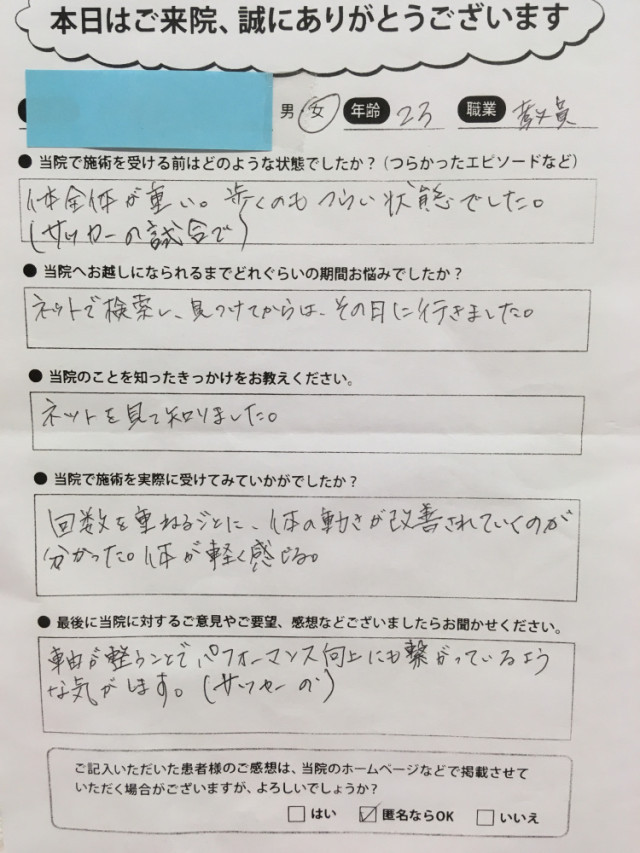 本日はご来院、誠にありがとうございます
男・女 年齢 23 職業 教員
● 当院で施術を受ける前はどのような状態でしたか？（つらかったエピソードなど）
体全体が重い。歩くのもつらい状態でした。
(サッカーの試合で)
● 当院へお越しになられるまでどれぐらいの期間お悩みでしたか？
ネットで検索し、見つけてからは、その日に行きました。
● 当院のことを知ったきっかけをお教えください。
ネットを見て知りました。
● 当院で施術を実際に受けてみていかがでしたか？
回数を重ねるごとに、体の動きが改善されていくのが
分かった。体が軽く感じる。
● 最後に当院に対するご意見やご要望、感想などございましたらお聞かせください。
が軽うことでパフォーマンス向上にも繋がっているよう
な気がします。(サッカーの)
ご記入いただいた患者様のご感想は、当院のホームページなどで掲載させて
いただく場合がございますが、よろしいでしょうか？
□ はい ☑ 匿名ならOK □ いいえ